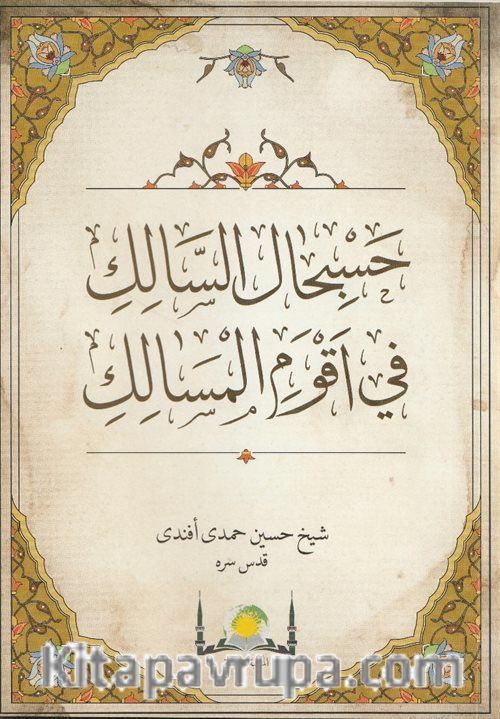 حَسْبِحَال السَّالِكِ
فِي اَقْوَمِ الْمَسَالِكِ
شيخ حسين حمدى أفندى
قدس سره
kitapavrupa.com